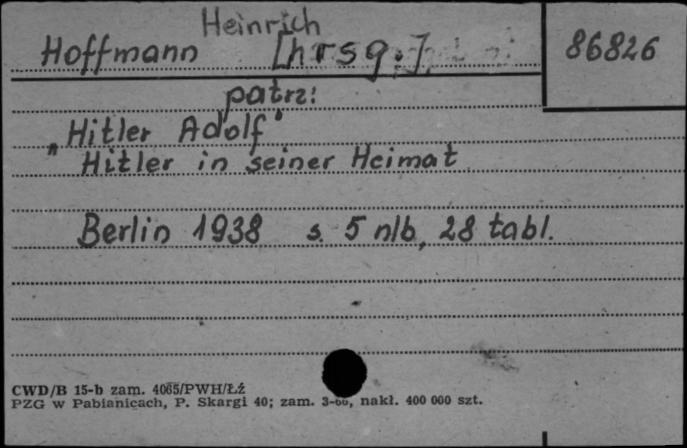 Heinrich
Hoffmann [hrsg.] 86826
patrz:
„Hitler Adolf"
Hitler in seiner Heimat
Berlin 1938 s. 5 nlb, 28 tabl.
CWD/B 15-b zam. 4065/PWH/Łź
PZG w Pabianicach, P. Skargi 40; zam. 3-66, nakł. 400 000 szt.